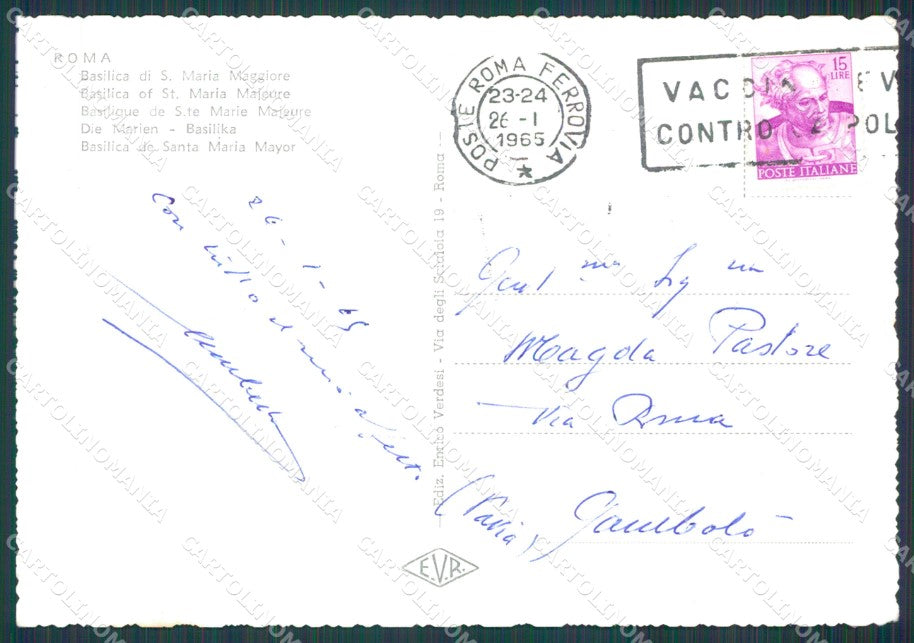 ROMA
Basilica di S. Maria Maggiore
Basilica of St. Maria Majeure
Basilique de S.te Marie Majeure
Die Marien - Basilika
Basilica de Santa Maria Mayor
POSTE ROMA FERROVIA
23-24
26-1
1965
VACCIN
CONTRO POL
15
LIRE
POSTE ITALIANE
26-1-65
Con
Ediz. Enrico Verdesi - Via degli Scipioia 19 - Roma
Gent ma Sig na
Magda Pastore
Via Roma
(Pavia) Gambolò
E.V.R.
CARTOLINOMANIA